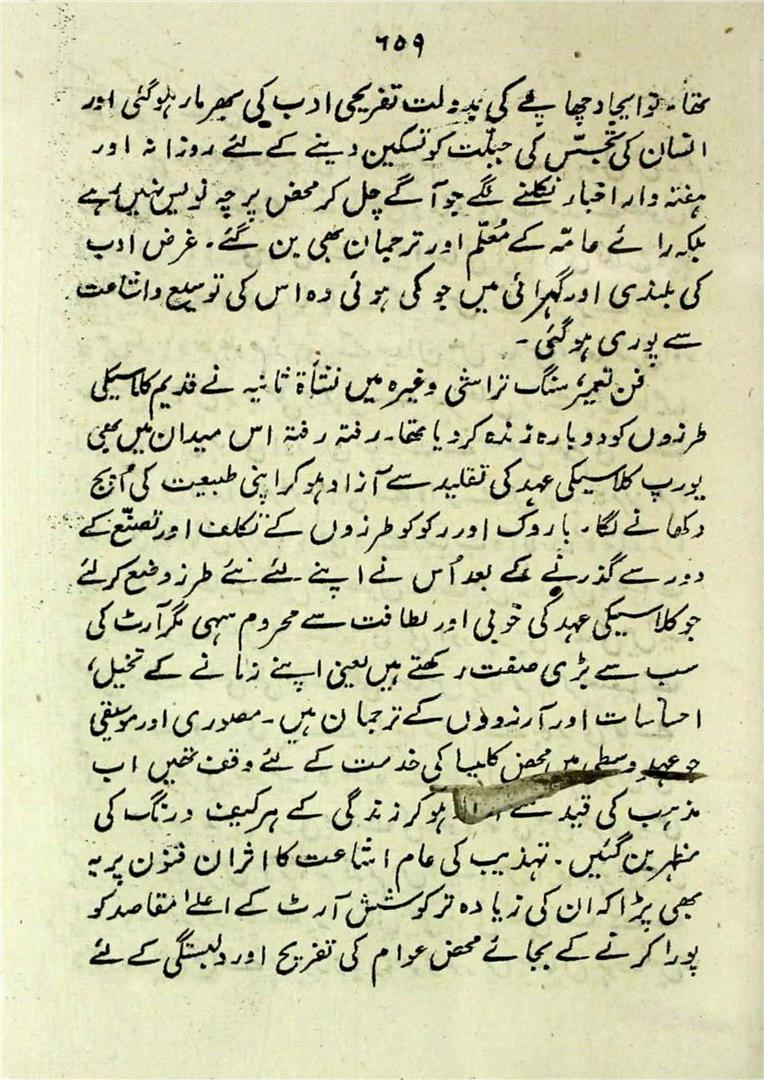 ٦٥٩
تھا۔ تو ایجاد چھاپے کی بدولت تفریحی ادب کی بھرمار ہوگئی اور
انسان کی تجسّس کی جبلّت کو تسکین دینے کے لئے روزانہ اور
ہفتہ وار اخبار نکلنے لگے جو آگے چل کر محض پرچہ نویس نہیں رہے
بلکہ رائے عامّہ کے مُعلّم اور ترجمان بھی بن گئے۔ غرض ادب
کی بلندی اور گہرائی میں جو کمی ہوئی وہ اس کی توسیع و اشاعت
سے پوری ہوگئی۔
فن تعمیر، سنگ تراشی وغیرہ میں نشأۃ ثانیہ نے قدیم کلاسیکی
طرزوں کو دوبارہ زندہ کر دیا تھا۔ رفتہ رفتہ اس میدان میں بھی
یورپ کلاسیکی عہد کی تقلید سے آزاد ہوکر اپنی طبیعت کی اُپج
دکھانے لگا۔ باروک اور رکوکو طرزوں کے تکلف اور تصنّع کے
دور سے گذرنے کے بعد اُس نے اپنے لئے نئے طرز وضع کرلئے
جو کلاسیکی عہد کی خوبی اور لطافت سے محروم سہی مگر آرٹ کی
سب سے بڑی صفت رکھتے ہیں یعنی اپنے زمانے کے تخیل،
احساسات اور آرزوؤں کے ترجمان ہیں۔ مصوری اور موسیقی
جو عہد وسطی میں محض کلیسا کی خدمت کے لئے وقف تھیں اب
مذہب کی قید سے ہوکر زندگی کے ہر کیف و رنگ کی
مظہر بن گئیں۔ تہذیب کی عام اشاعت کا اثر ان فنون پر یہ
بھی پڑا کہ ان کی زیادہ تر کوشش آرٹ کے اعلےٰ مقاصد کو
پورا کرنے کے بجائے محض عوام کی تفریح اور دلبستگی کے لئے